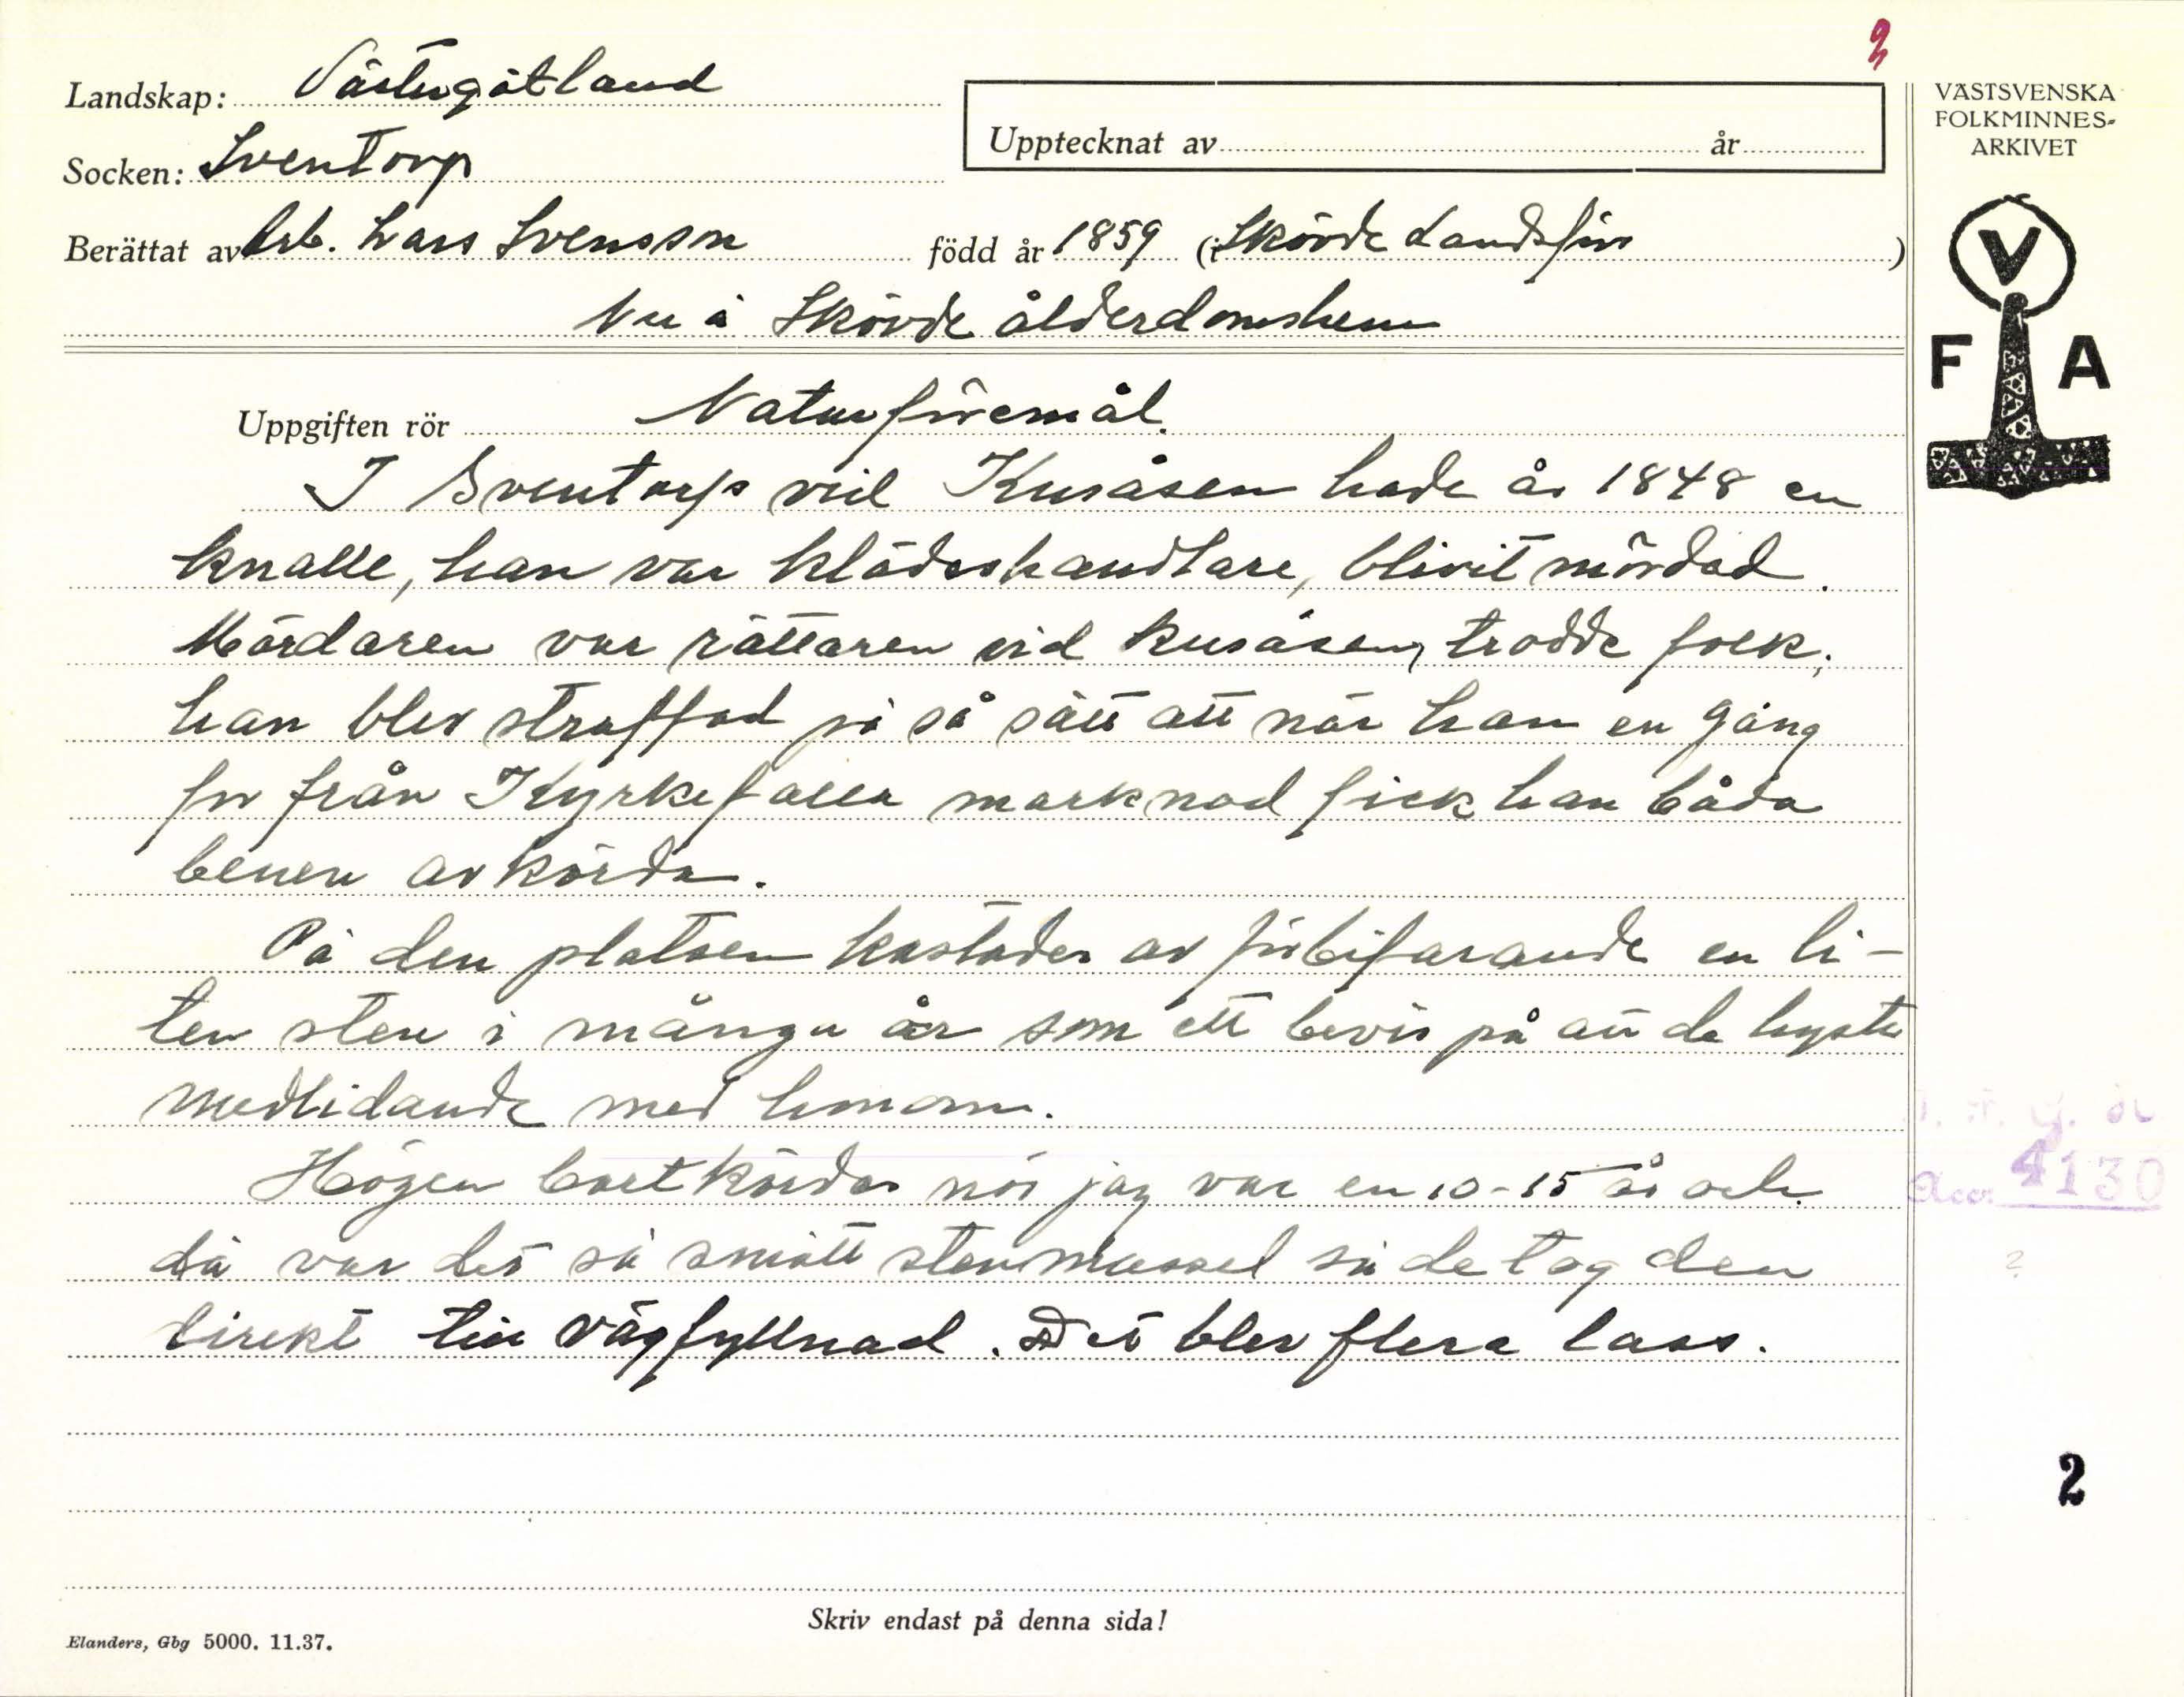 Landskap: Västergötland
Socken: Sventorp
Berättat av Arb. Lars Svensson född år 1859 (i Skövde Landsför )
Nu å Skövde ålderdomshem
Upptecknat av år
VÄSTSVENSKA
FOLKMINNES-
ARKIVET
V
F A
Uppgiften rör Naturföremål.
I Sventorp vid Kusåsen hade år 1848 en
knalle, han var klädeshandlare, blivit mördad.
Mördaren var rättaren vid Kusåsen, trodde folk,
han blev straffad på så sätt att när han en gång
for från Kyrkefalla marknad fick han båda
benen avkörda.
På den platsen kastades av förbifarande en li-
ten sten i många år som ett bevis på att de hyste
medlidande med honom.
Högen bortkördes när jag var en 10-15 år och
då var det så smått stenmussel så de tog den
direkt till vägfyllnad. Det blev flera lass.
Acc. 4130
2
Skriv endast på denna sida!
Elanders, Gbg 5000. 11.37.